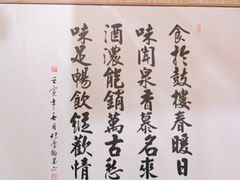 食於鼓樓春暖日
味聞泉香慕名來
酒濃能銷萬古愁
味足暢飲縱歡情
壬寅年